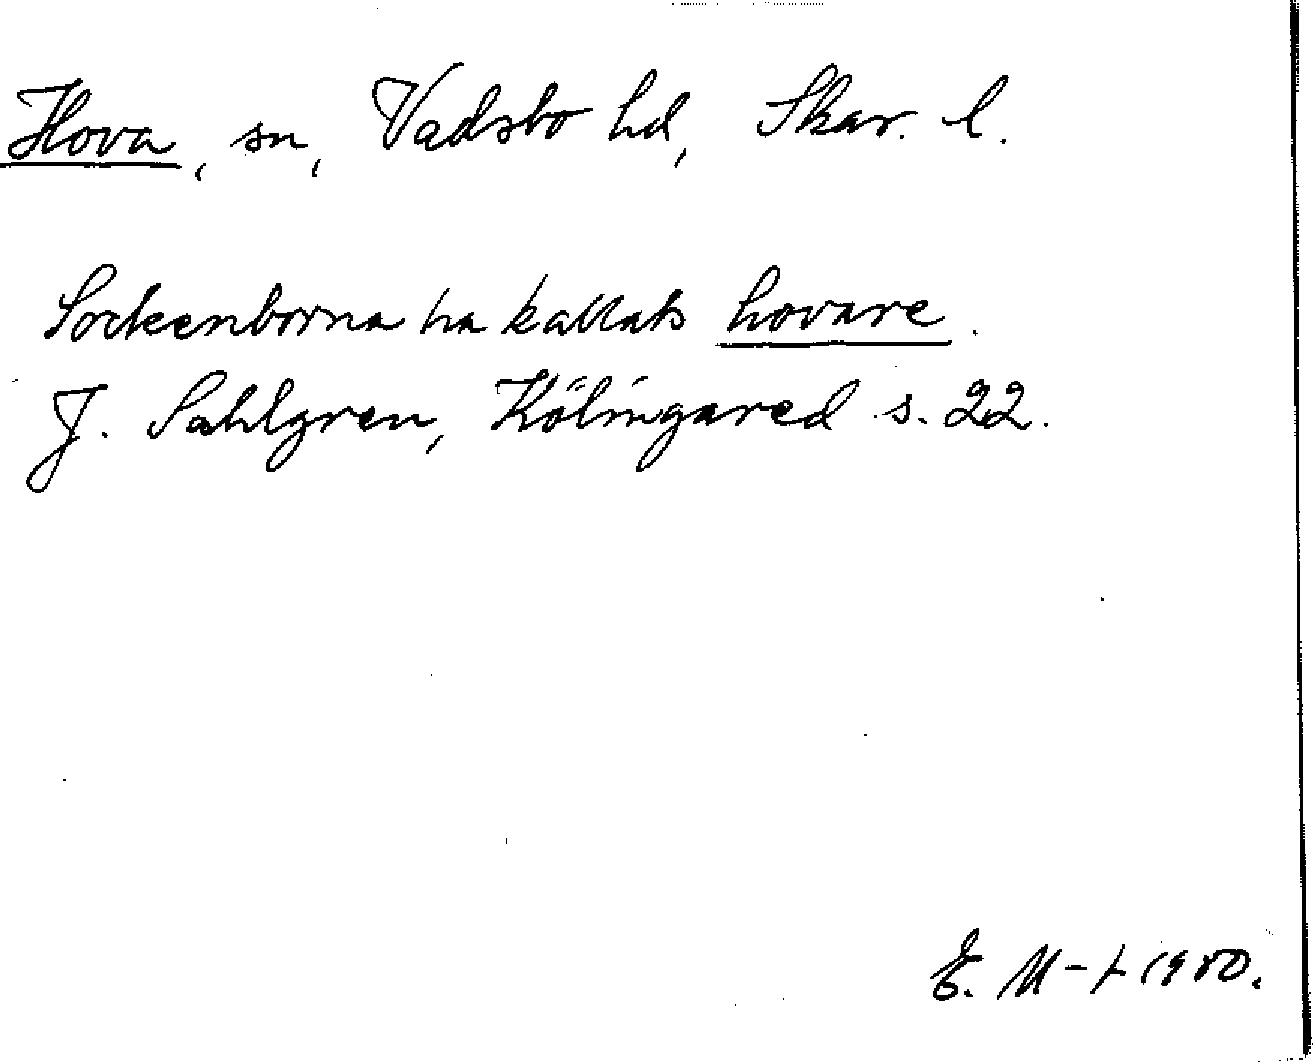 Hova, sn, Vadsbo hd, Skar. l.
Sockenborna ha kallats hovare.
J. Sahlgren, Kölingared s. 22.
E. M-t 1980.